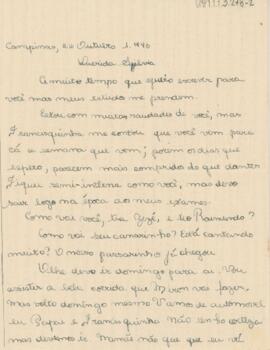 Campinas, 22 Outubro 1.940
Querida Sylvia
A muito tempo que quero escrever para
você mas meus estudo me prendem.
Estou com muitas saudades de você, mas
Francisquinha me contou que você vem para
cá a semana que vem; porem os dias que
espero, parecem mais compridos do que dantes
Fiquei semi-interna como você, mas devo
sair logo na época dos meus exames.
Como vai você, tia Zezé, e tio Raimundo?
Como vai seu canarinho? Está cantando
muito? O nosso passarinho já chegou
Olhe devo ir domingo para ai. Vou
assistir a bela corrida que vai fazer,
mas volto domingo mesmo Vamos de automovel
eu Papai e Francisquinha Não tenho certeza
mas devemos ir. Mamãe não que eu vá